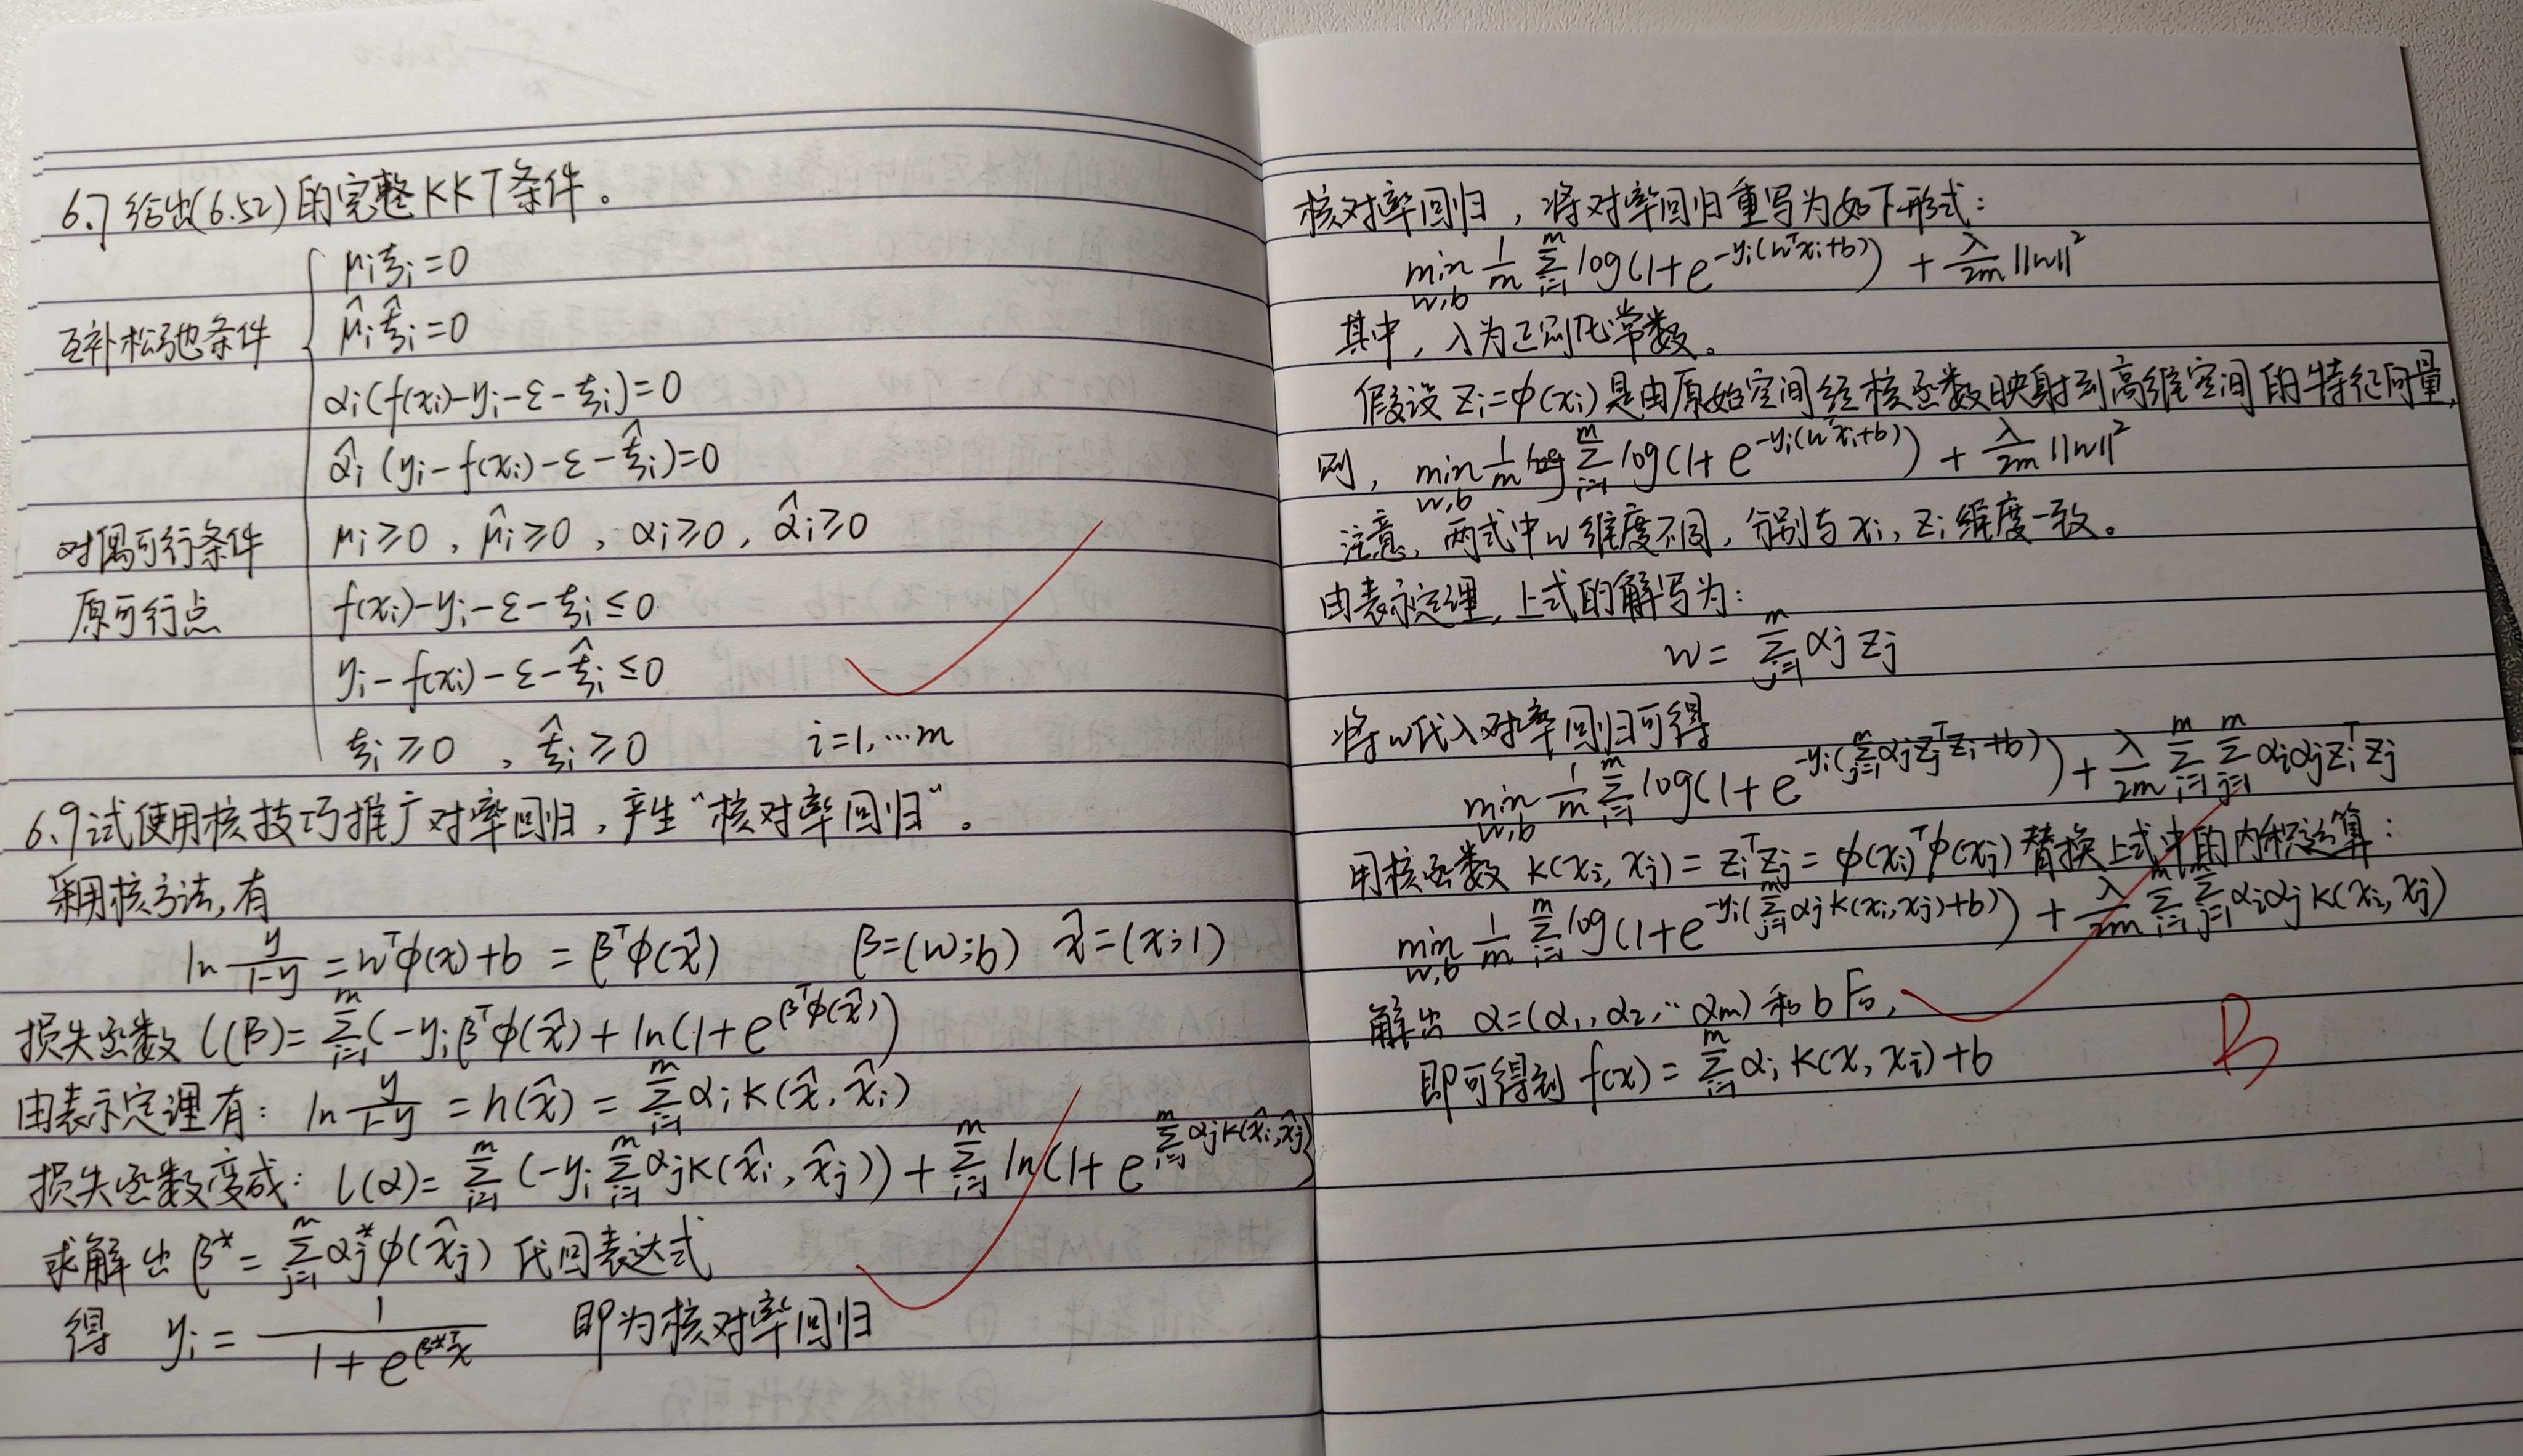 6.7 给出(6.52)的完整KKT条件。
μiξi=0
互补松弛条件 μ̂iξ̂i=0
αi(f(xi)-yi-ε-ξi)=0
α̂i(yi-f(xi)-ε-ξ̂i)=0
对偶可行条件 μi≥0, μ̂i≥0, αi≥0, α̂i≥0
原可行点 f(xi)-yi-ε-ξi≤0
yi-f(xi)-ε-ξ̂i≤0
ξi≥0, ξ̂i≥0 i=1,…m
6.9 试使用核技巧推广对率回归,产生“核对率回归”。
采用核方法,有
ln y/(1-y) = wᵀφ(x)+b = βᵀφ(x̂) β=(w;b) x̂=(x;1)
损失函数 l(β)= Σ_{i=1}^m (-yiβᵀφ(x̂)+ln(1+e^{βᵀφ(x̂)})
由表示定理有: ln y/(1-y) = h(x̂) = Σ_{i=1}^m αi K(x̂, x̂i)
损失函数变成: l(α)= Σ_{i=1}^m (-yi Σ_{i=1}^m αjK(x̂i, x̂j)) + Σ_{i=1}^m ln(1+e^{Σ_{i=1}^m αjK(x̂i,x̂j)})
求解出 β*= Σ_{j=1}^m αj*φ(x̂j) 代回表达式
得 yi = 1/(1+e^{β*ᵀx}) 即为核对率回归
核对率回归,将对率回归重写为如下形式:
min_{w,b} 1/m Σ_{i=1}^m log(1+e^{-yi(wᵀxi+b)}) + λ/2m ||w||²
其中,λ为正则化常数。
假设 zi=φ(xi) 是由原始空间经核函数映射到高维空间的特征向量,
则, min_{w,b} 1/m Σ_{i=1}^m log(1+e^{-yi(wᵀxi+b)}) + λ/2m ||w||²
注意,两式中w维度不同,分别与xi, zi维度一致。
由表示定理,上式的解写为:
w= Σ_{j=1}^m αj zj
将w代入对率回归可得
min_{w,b} 1/m Σ_{i=1}^m log(1+e^{-yi(Σ_{j=1}^m αjzjᵀzi+b)}) + λ/2m Σ_{i=1}^m Σ_{j=1}^m αiαjziᵀzj
用核函数 K(xi, xj)=ziᵀzj=φ(xi)ᵀφ(xj)替换上式中的内积运算:
min_{w,b} 1/m Σ_{i=1}^m log(1+e^{-yi(Σ_{j=1}^m αjK(xi,xj)+b)}) + λ/2m Σ_{i=1}^m Σ_{j=1}^m αiαjK(xi,xj)
解出 α=(α1, α2, … αm) 和b后,
即可得到 f(x)= Σ_{i=1}^m αi K(x, xi)+b
B